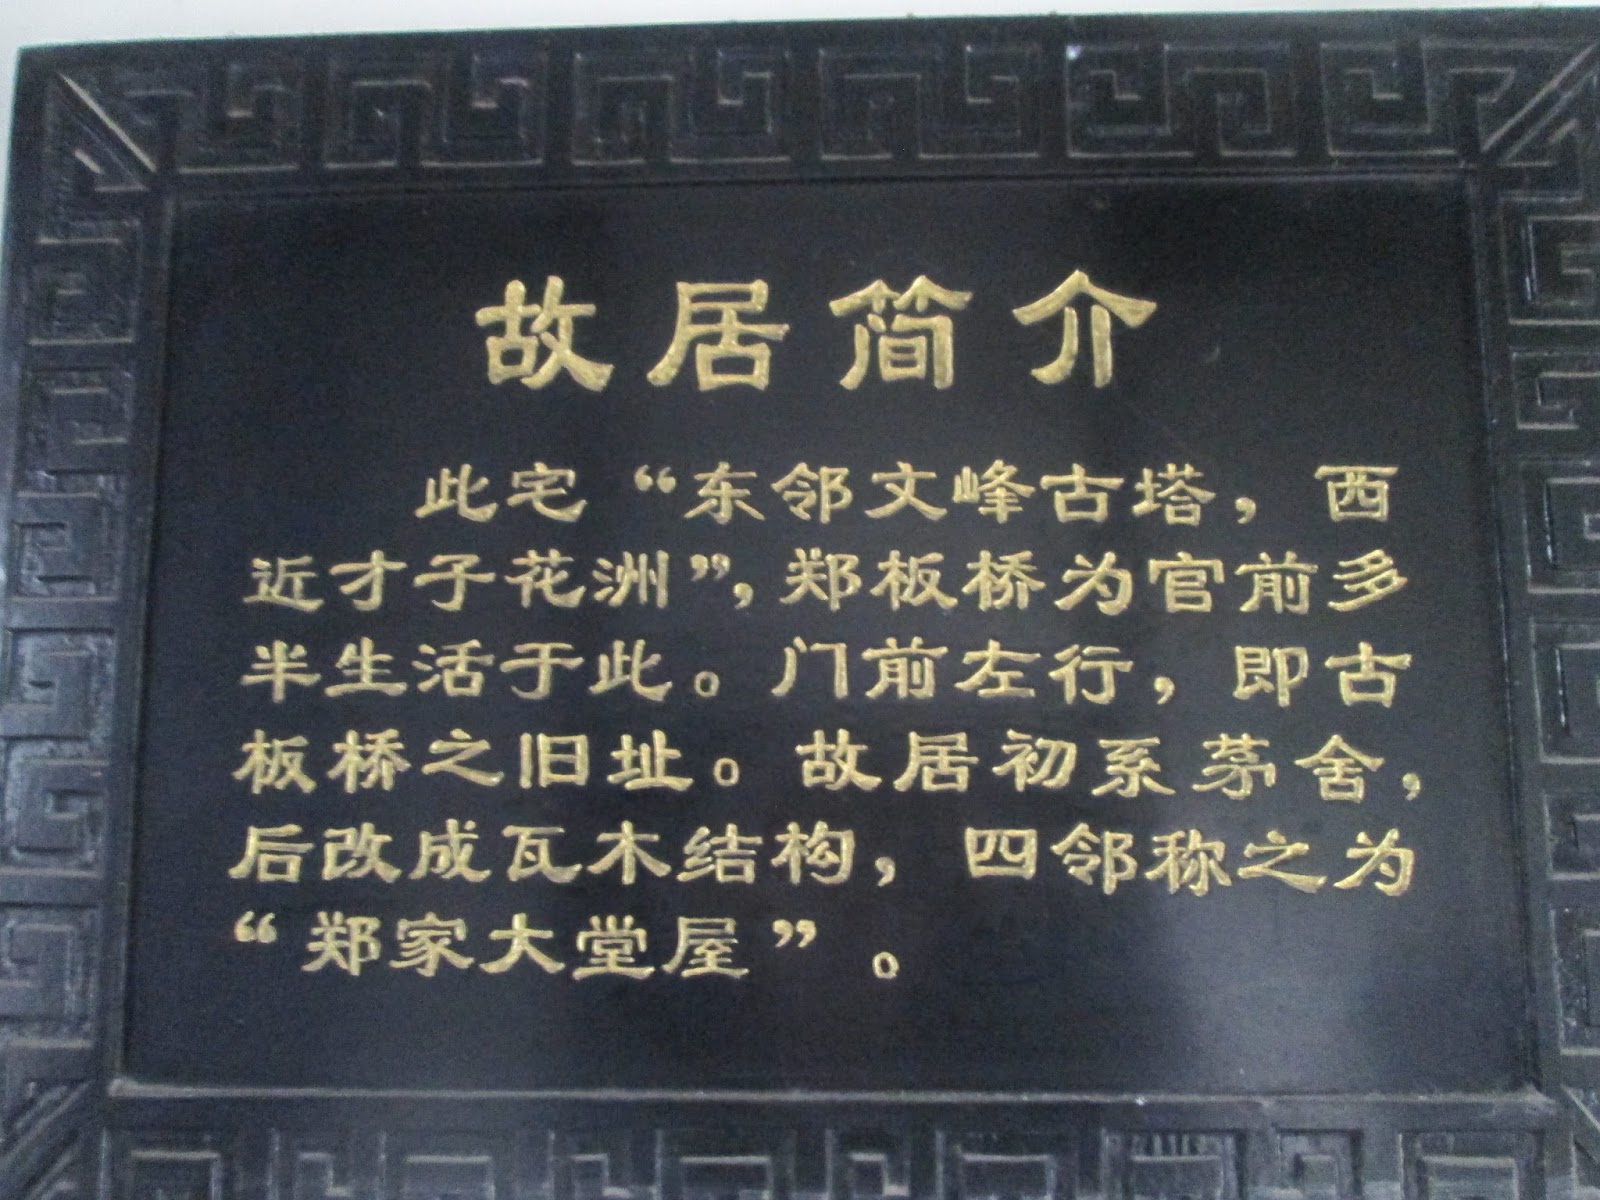 故居简介
此宅“东邻文峰古塔，西
近才子花洲”，郑板桥为官前多
半生活于此。门前左行，即古
板桥之旧址。故居初系茅舍，
后改成瓦木结构，四邻称之为
“郑家大堂屋”。